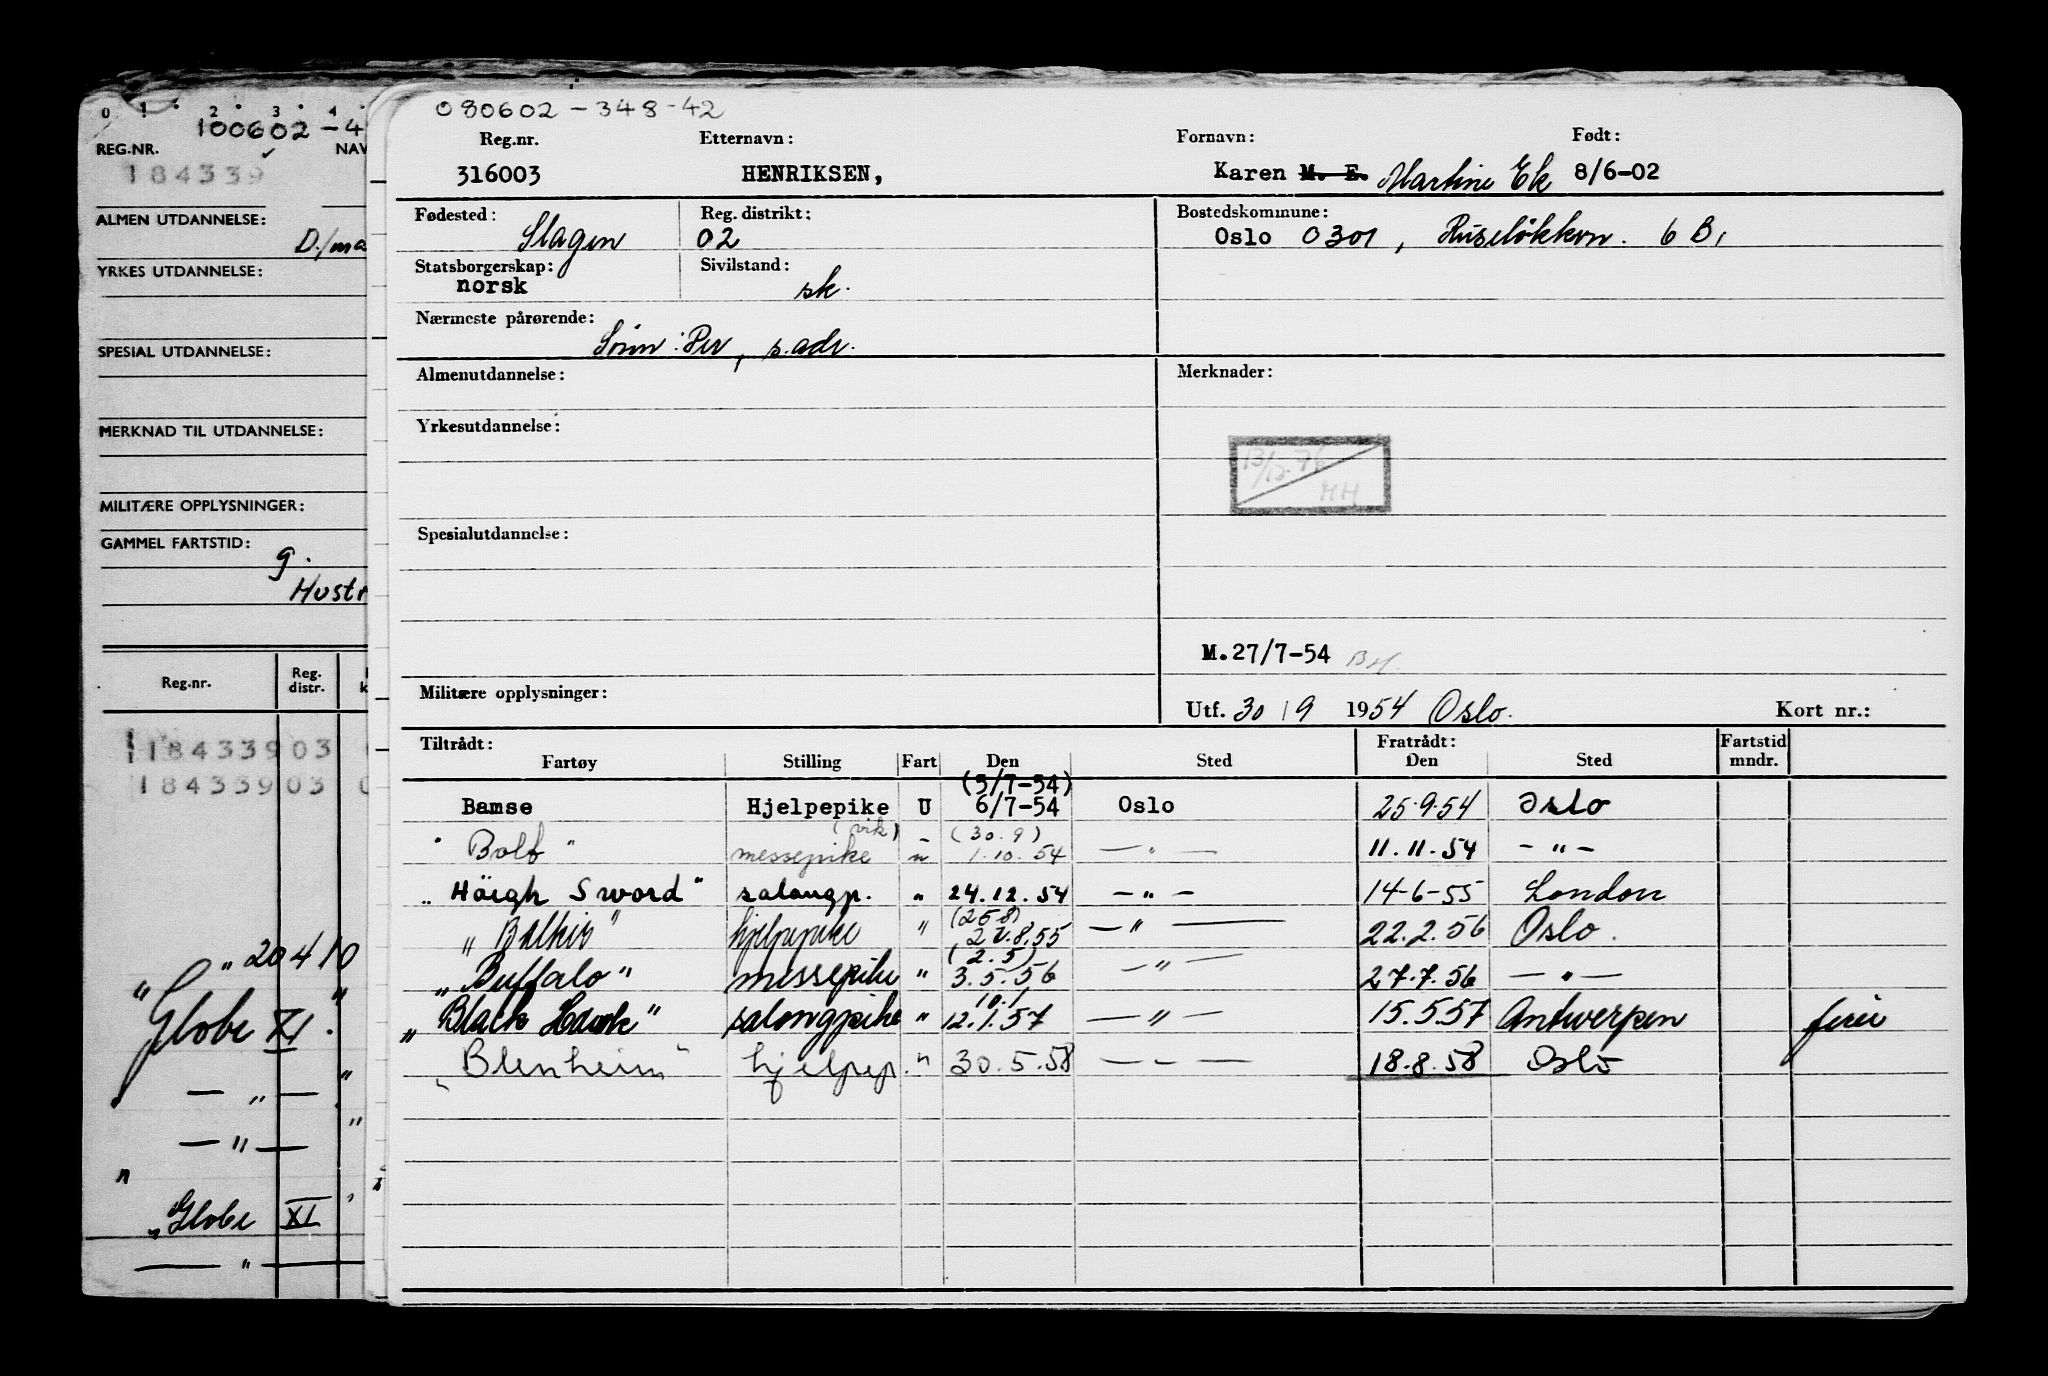 0 1 2 3 4
100602-4
REG.NR. NAV
184339
ALMEN UTDANNELSE:
D./ma
YRKES UTDANNELSE:
SPESIAL UTDANNELSE:
MERKNAD TIL UTDANNELSE:
MILITÆRE OPPLYSNINGER:
GAMMEL FARTSTID:
g.
Hustr
Reg.nr. Reg. distr.
184339 03
184339 03
" 20 4 10
"Globe XI."
— " —
— " —
"Globe XI
— " —
080602-348-42
Reg.nr. Etternavn: Fornavn: Født:
316003 HENRIKSEN, Karen M. E. Martine Ek 8/6-02
Fødested: Reg. distrikt: Bostedskommune:
Slagen 02 Oslo 0301, Ruseløkkvn. 6 B,
Statsborgerskap: Sivilstand:
norsk sk.
Nærmeste pårørende:
Sønn: Per, s. adr.
Almenutdannelse: Merknader:
Yrkesutdannelse:
13/12.76
HH
Spesialutdannelse:
M.27/7-54
Militære opplysninger:
Utf. 30/9 1954 Oslo. Kort nr.:
Tiltrådt: Fratrådt: Fartstid
Fartøy Stilling Fart Den Sted Den Sted mndr.
(5/7-54)
Bamse Hjelpepike U 6/7-54 Oslo 25.9.54 Oslo
(vik) (30.9)
"Bolt" messepike " 1.10.54 — " — 11.11.54 — " —
"Höigh Sword" salongp. " 24.12.54 — " — 14-6-55 London
(25 8)
"Balkis" hjelpepike " 27.8.55 — " — 22.2.56 Oslo.
(2.5)
"Buffalo" messepike " 3.5.56 — " — 27.7.56 — " —
10.1
"Black Hawk" salongpike " 12.1.57 — " — 15.5.57 Antwerpen
"Blenheim" hjelpep. " 30.5.58 — " — 18.8.58 Oslo